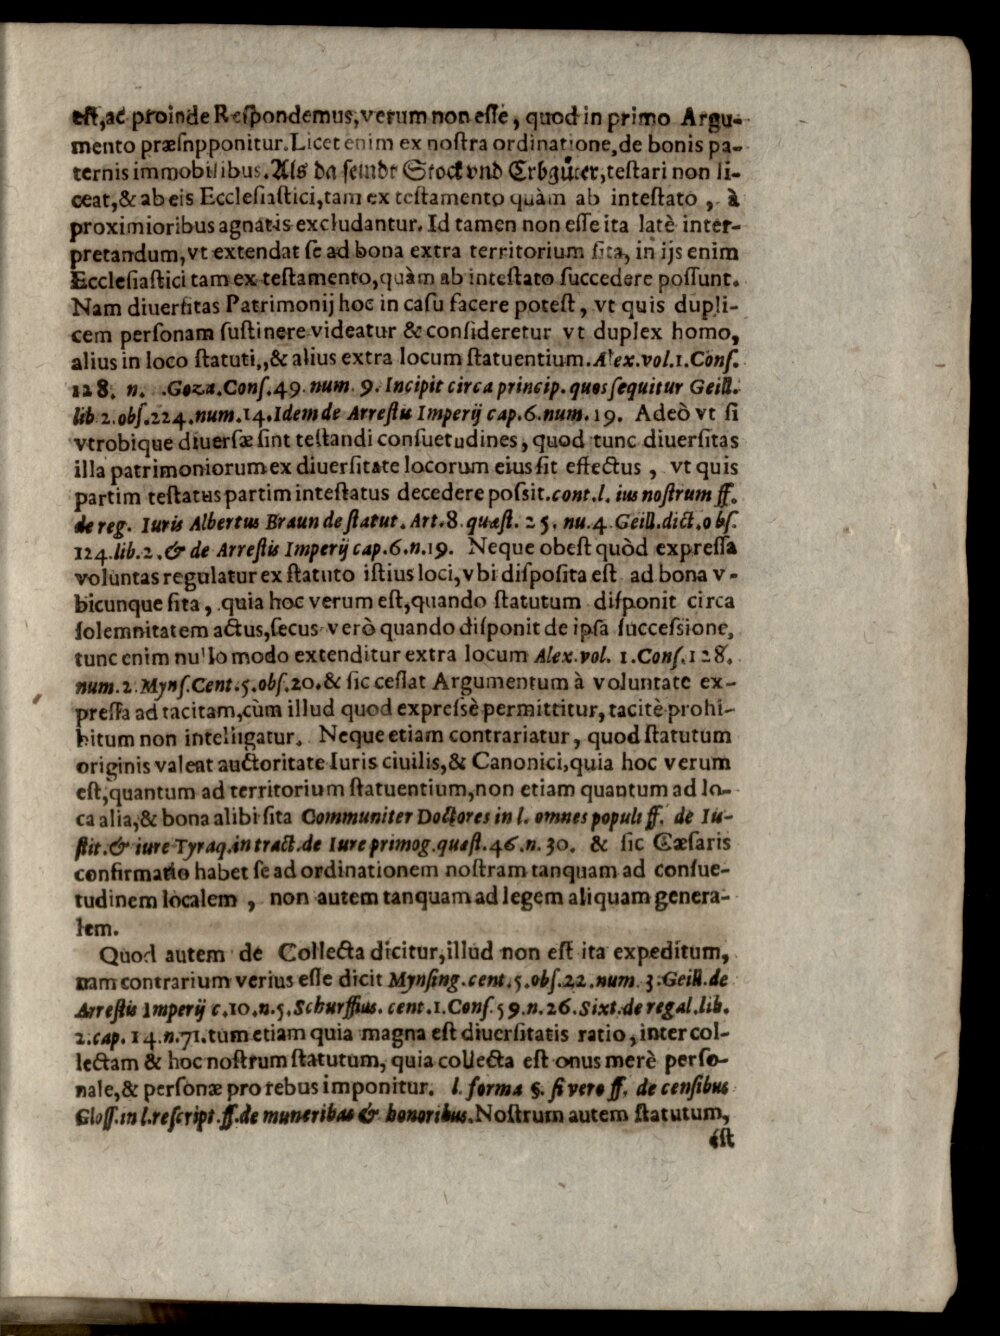 est,ac proinde Respondemus,verum non esse, quod in primo Argu-
mento præsnpponitur.Licet enim ex nostra ordinatione,de bonis pa-
ternis immobilibus.Als da seindt Stock vnd Erbgüter,testari non li-
ceat,& ab eis Ecclesiastici,tam ex testamento quàm ab intestato, à
proximioribus agnatis excludantur. Id tamen non esse ita latè inter-
pretandum,vt extendat se ad bona extra territorium sita, in ijs enim
Ecclesiastici tam ex testamento,quàm ab intestato succedere possunt.
Nam diuersitas Patrimonij hoc in casu facere potest, vt quis dupli-
cem personam sustinere videatur & consideretur vt duplex homo,
alius in loco statuti,,& alius extra locum statuentium.Alex.vol.1.Cons.
128. n. .Goza.Cons.49.num.9.Incipit circa princip.quos sequitur Geill.
lib 2.obs.224.num.14.Idem de Arrestis Imperij cap.6.num.19. Adeò vt si
vtrobique diuersæ sint testandi consuetudines, quod tunc diuersitas
illa patrimoniorum ex diuersitate locorum eius sit effectus, vt quis
partim testatus partim intestatus decedere possit.cont.l. ius nostrum ff.
de reg. Iuris Albertus Braun de statut. Art.8.quæst.25.nu.4.Geill.dict.obs.
124.lib.2.& de Arrestis Imperij cap.6.n.19. Neque obest quòd expressa
voluntas regulatur ex statuto istius loci,vbi disposita est ad bona v-
bicunque sita, quia hoc verum est,quando statutum disponit circa
solemnitatem actus,secus verò quando disponit de ipsa successione,
tunc enim nullo modo extenditur extra locum Alex.vol. 1.Cons.128.
num.2.Myns.Cent.5.obs.20.& sic cessat Argumentum à voluntate ex-
pressa ad tacitam,cùm illud quod expressè permittitur, tacitè prohi-
bitum non intelligatur. Neque etiam contrariatur, quod statutum
originis valeat auctoritate Iuris ciuilis,& Canonici,quia hoc verum
est,quantum ad territorium statuentium,non etiam quantum ad lo-
ca alia,& bona alibi sita Communiter Doctores in l. omnes populi ff. de Iu-
stit.& iure Tyraq.in tract.de Iure primog.quæst.46.n.30. & sic Cæsaris
confirmatio habet se ad ordinationem nostram tanquam ad consue-
tudinem localem, non autem tanquam ad legem aliquam genera-
lem.
Quod autem de Collecta dicitur,illud non est ita expeditum,
nam contrarium verius esse dicit Mynsing.cent.5.obs.22.num.3.Geill.de
Arrestis Imperij c.10.n.5.Schurffius.cent.1.Cons.59.n.26.Sixt.de regal.lib.
2.cap.14.n.71.tum etiam quia magna est diuersitatis ratio, inter col-
lectam & hoc nostrum statutum, quia collecta est onus merè perso-
nale,& personæ pro rebus imponitur. l. forma §. si vero ff. de censibus
Gloss.in l.rescript.ff.de muneribus & honoribus.Nostrum autem statutum,
est